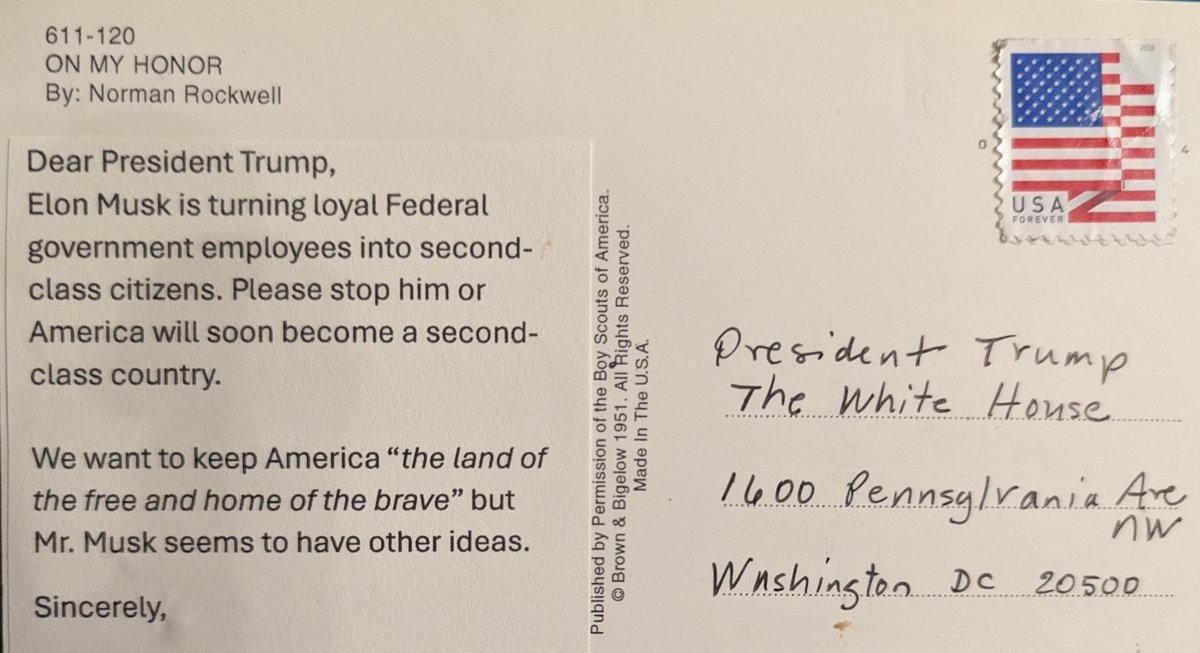 611-120
ON MY HONOR
By: Norman Rockwell
Dear President Trump,
Elon Musk is turning loyal Federal
government employees into second-
class citizens. Please stop him or
America will soon become a second-
class country.
We want to keep America “the land of
the free and home of the brave” but
Mr. Musk seems to have other ideas.
Sincerely,
Published by Permission of the Boy Scouts of America.
© Brown & Bigelow 1951. All Rights Reserved.
Made In The U.S.A.
2018
USA
FOREVER
0 4
President Trump
The White House
1600 Pennsylvania Ave
NW
Washington DC 20500